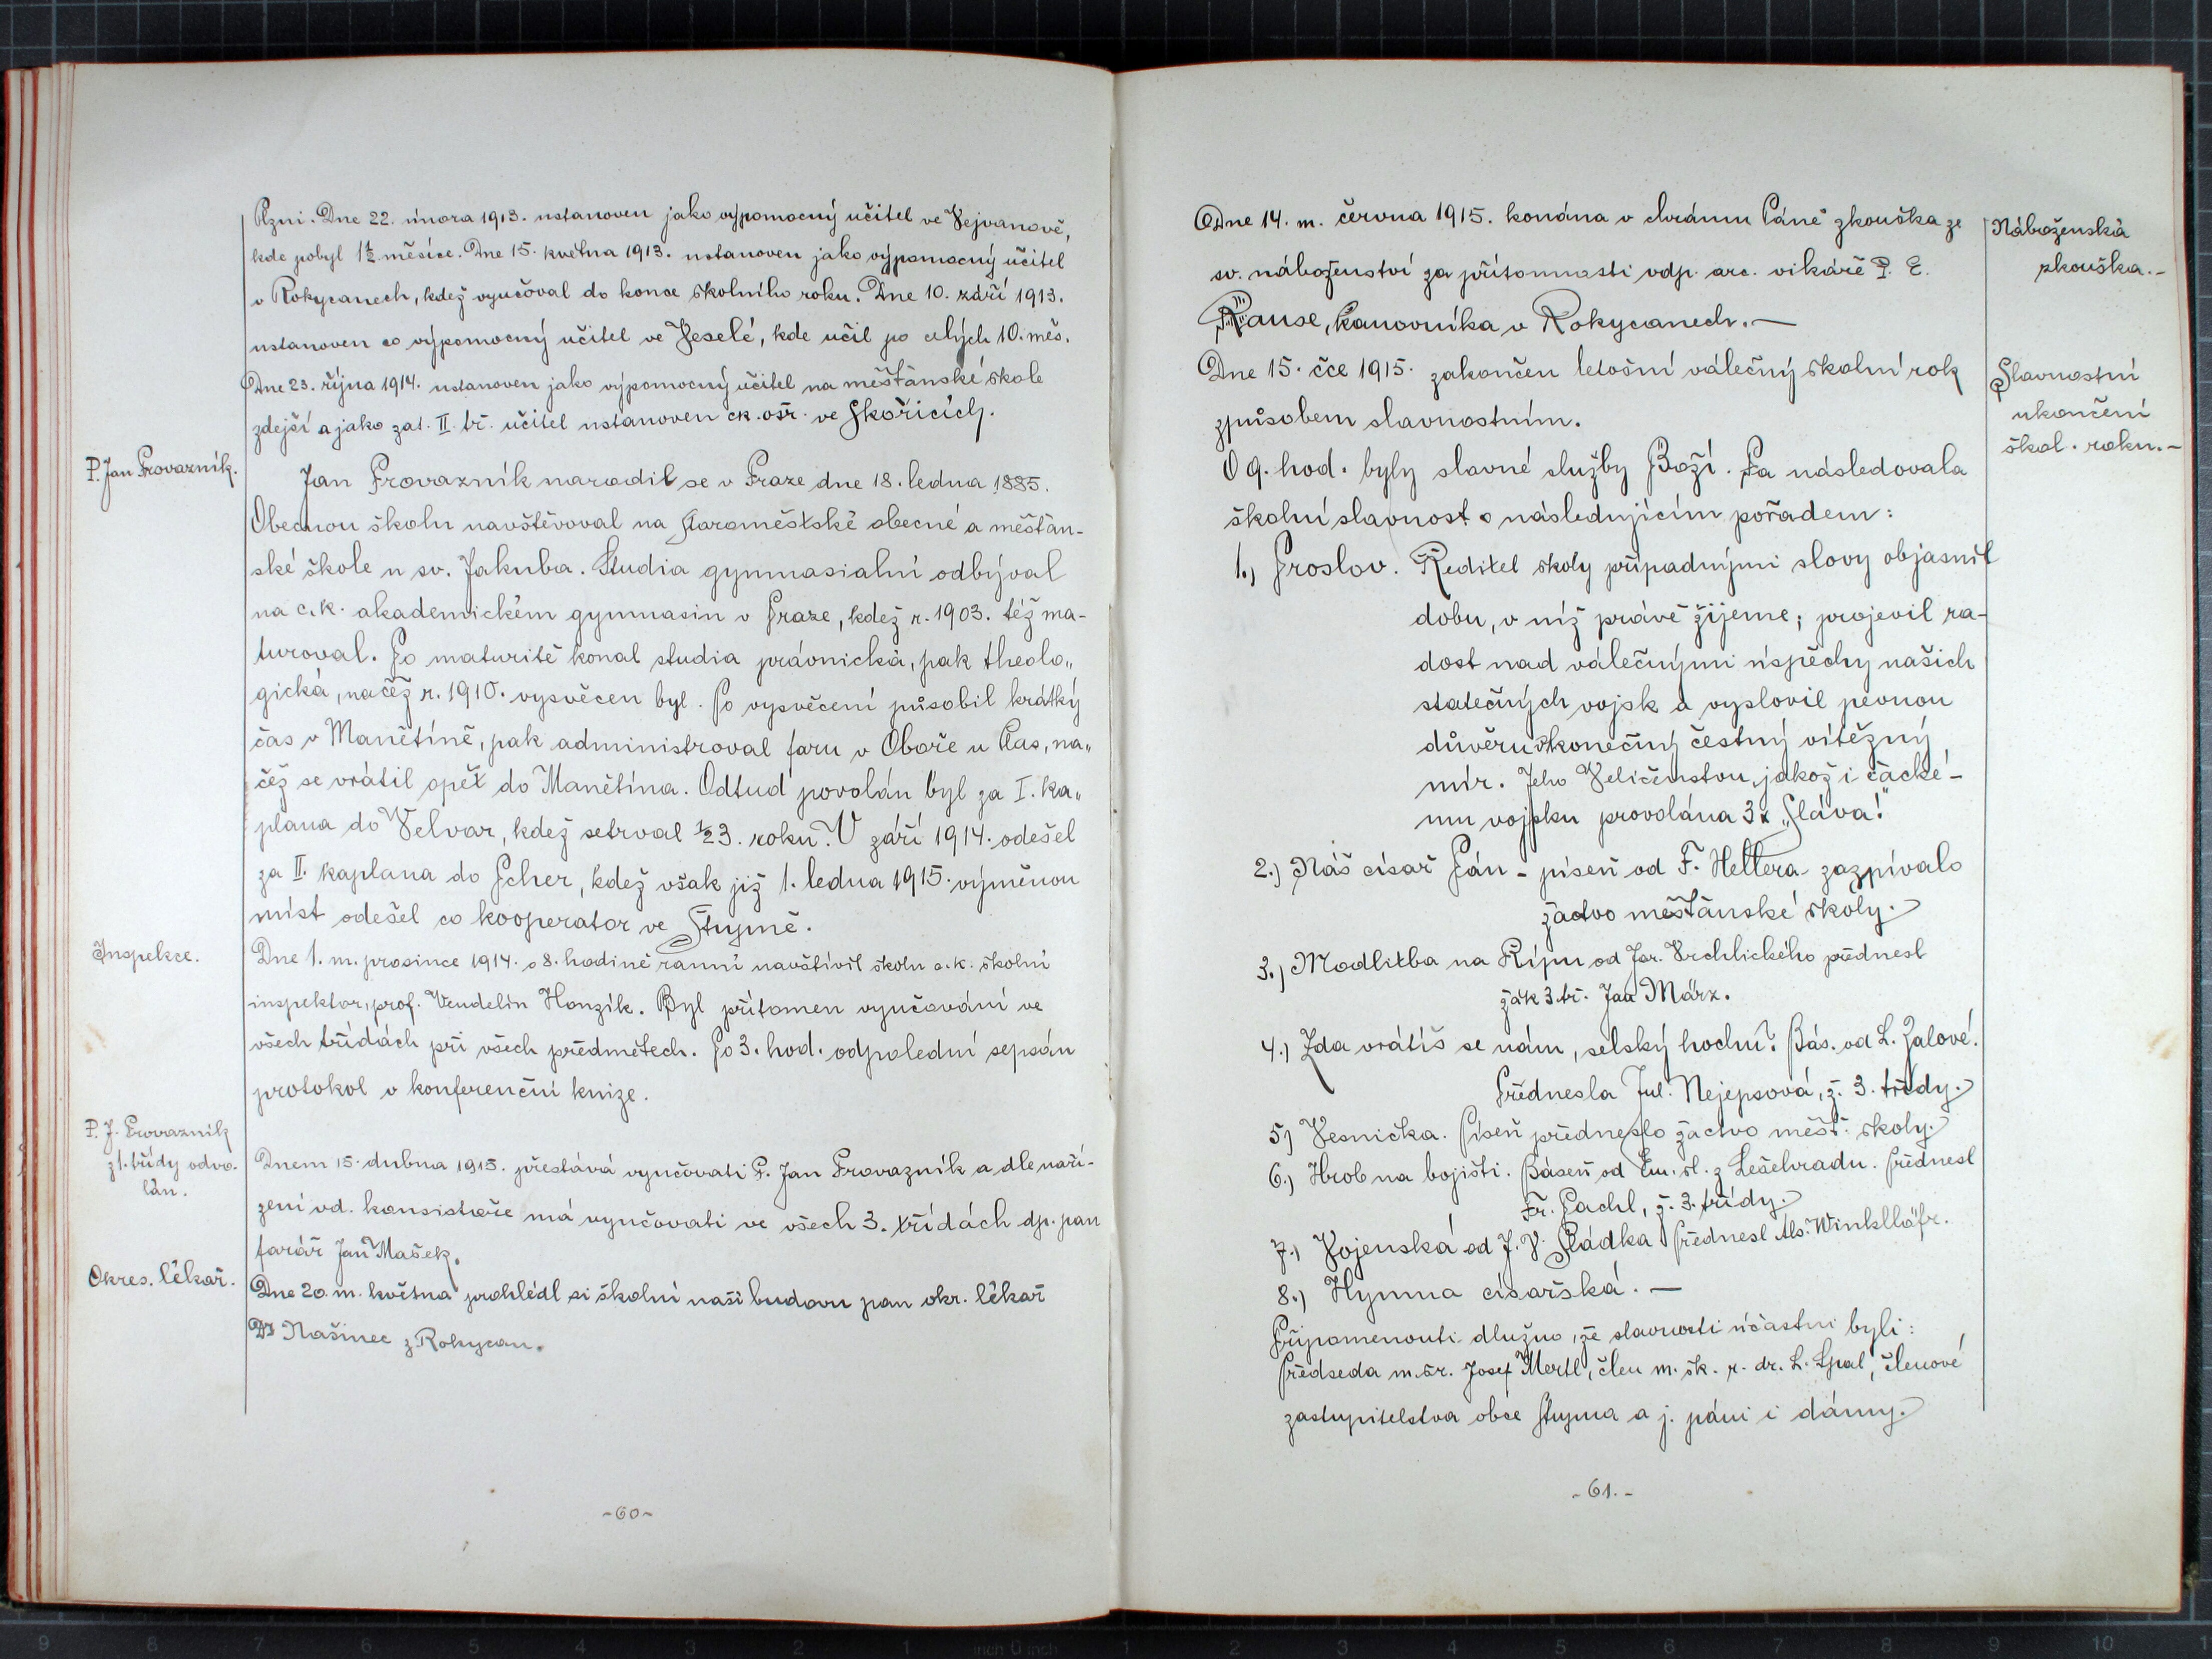 Plzni. Dne 22. února 1913. ustanoven jako výpomocný učitel ve Vejvanově,
kde pobyl 1½ měsíce. Dne 15. května 1913. ustanoven jako výpomocný učitel
v Rokycanech, kdež vyučoval do konce školního roku. Dne 10. září 1913.
ustanoven co výpomocný učitel ve Veselé, kde učil po celých 10. měs.
Dne 23. října 1914. ustanoven jako výpomocný učitel na měšťanské škole
zdejší a jako zat. II. tř. učitel ustanoven ck. ošr. ve Skořicích.
P. Jan Provazník.
Jan Provazník narodil se v Praze dne 18. ledna 1885.
Obecnou školu navštěvoval na Staroměstské obecné a měšťan-
ské škole u sv. Jakuba. Studia gymnasialní odbýval
na c.k. akademickém gymnasiu v Praze, kdež r. 1903. též ma-
turoval. Po maturitě konal studia právnická, pak theolo„
gická, načež r. 1910. vysvěcen byl. Po vysvěcení působil krátký
čas v Manětíně, pak administroval faru v Oboře u Plas, na„
čež se vrátil opět do Manětína. Odtud povolán byl za I. ka„
plana do Velvar, kdež setrval ½3. roku. V září 1914. odešel
za II. kaplana do Scher, kdež však již 1. ledna 1915. výměnou
míst odešel co kooperator ve Štymě.
Inspekce.
Dne 1. m. prosince 1914. o 8. hodině ranní navštívil školu c.k. školní
inspektor, prof. Vendelín Honzík. Byl přítomen vyučování ve
všech třídách při všech předmětech. Po 3. hod. odpolední sepsán
protokol v konferenční knize.
P. J. Provazník
z 1. třídy odvo-
lán.
Dnem 15. dubna 1915. přestává vyučovati P. Jan Provazník a dle naří-
zení vd. konsistoře má vyučovati ve všech 3. třídách dp. pan
farář Jan Mašek.
Okres. lékař.
Dne 20. m. května prohlédl si školní naši budovu pan okr. lékař
Dr Našinec z Rokycan.
-60-
Dne 14. m. června 1915. konána v chrámu Páně zkouška ze
sv. náboženství za přítomnosti vdp. arc. vikáře P. E.
Krause, kanovníka v Rokycanech.—
Náboženská
zkouška.-
Dne 15. čce 1915. zakončen letošní válečný školní rok
způsobem slavnostním.
Slavnostní
ukončení
škol. roku.-
O 9. hod. byly slavné služby Boží. Pa následovala
školní slavnost s následujícím pořadem:
1.) Proslov. Ředitel školy případnými slovy objasnil
dobu, v níž právě žijeme; projevil ra-
dost nad válečnými úspěchy našich
statečných vojsk a vyslovil pevnou
důvěru v konečný čestný vítězný
mír. Jeho Veličenstvu, jakož i čacké-
mu vojsku provolána 3x „Sláva!"
2.) Náš císař Pán - píseň od F. Hellera zazpívalo
žactvo měšťanské školy.
3.) Modlitba na Řípu od Jar. Vrchlického přednesl
žák 3 tř. Jan März.
4.) Zda vrátíš se nám, selský hochu? Bás. od L. Zalové.
Přednesla Jul. Nejepsová, ž. 3. třídy.
5) Vesnička. Píseň předneslo žactvo měšť. školy.
6.) Hrob na bojišti. Báseň od Em. sl. z Lešehradu. Přednesl
Fr. Pachl, ž. 3. třídy.
7.) Vojenská od J. V. Sládka přednesl Als. Winklhöfr.
8.) Hymna císařská. —
Připomenouti dlužno, že slavnosti účastni byli:
Předseda m.šr. Josef Mertl, člen m. šk. r. dr. L. Spal, členové
zastupitelstva obce Štyma a j. páni i dámy.
-61.-